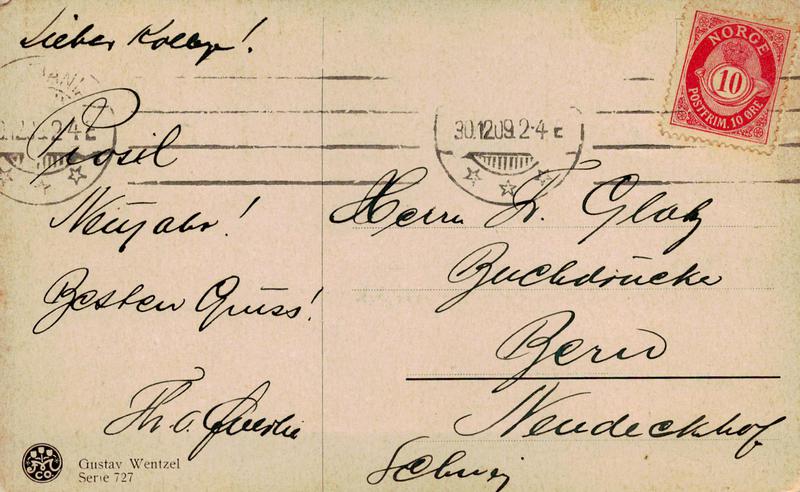 Lieber Kollege!
Prosit
Neujahr!
Besten Gruss!
Th. v.
NORGE
10
POSTFRIM. 10 ØRE
30.12.09. 2-4 E
0.12. 2-4 E
Herrn Fr. Glatz
Buchdrucker
Bern
Neudeckhof
Schweiz
Gustav Wentzel
Serie 727